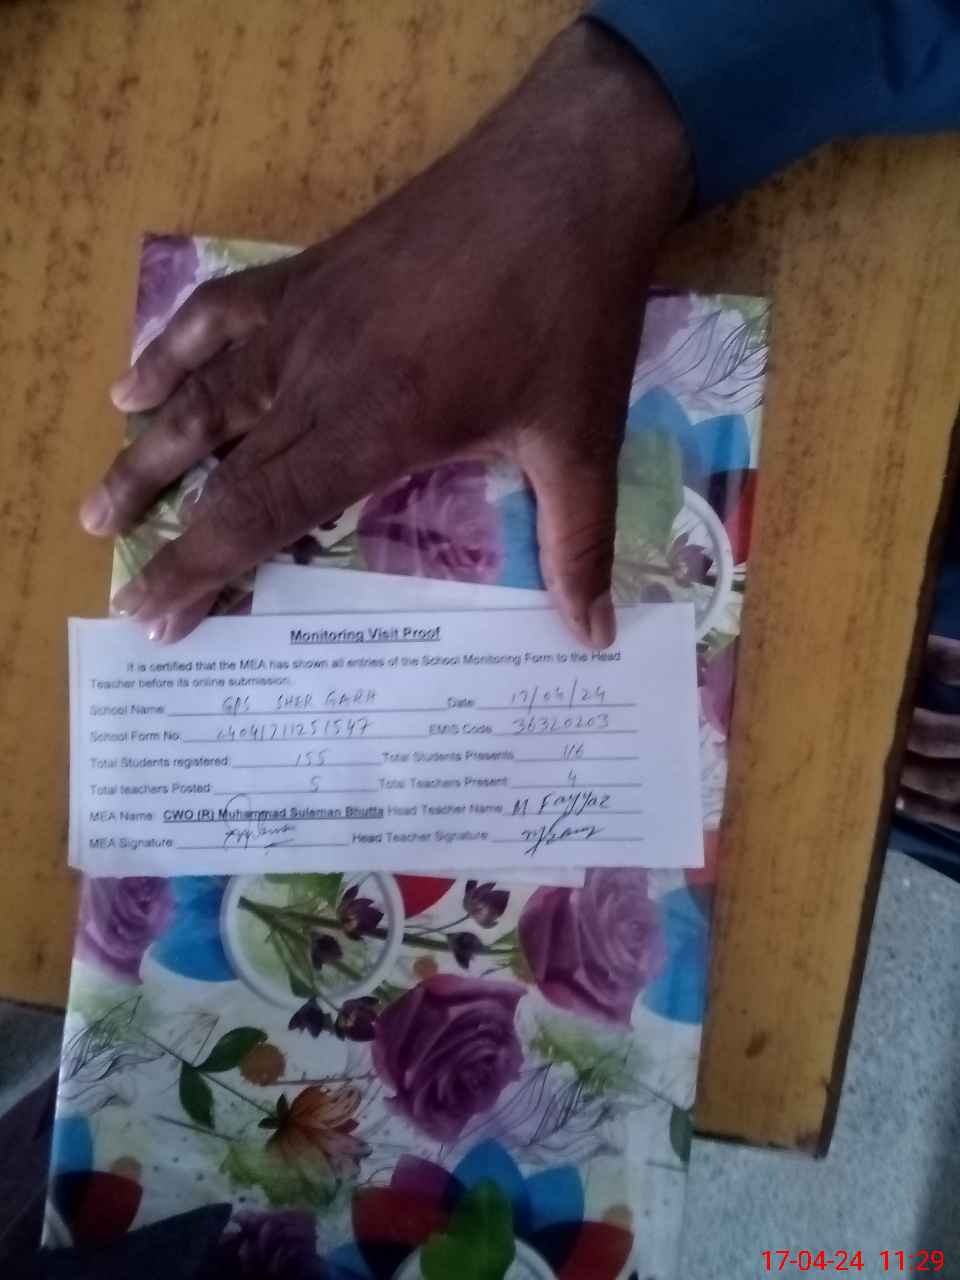 Monitoring Visit Proof
It is certified that the MEA has shown all entries of the School Monitoring Form to the Head
Teacher before its online submission.
School Name: GPS SHER GARH Date: 17/04/24
School Form No: EMIS Code: 36320203
Total Students registered: 155 Total Students Presents: 116
Total teachers Posted: 5 Total Teachers Present: 4
MEA Name: CWO (R) Muhammad Suleman Bhutta Head Teacher Name: M Fayyaz
MEA Signature: Head Teacher Signature:
17-04-24 11:29